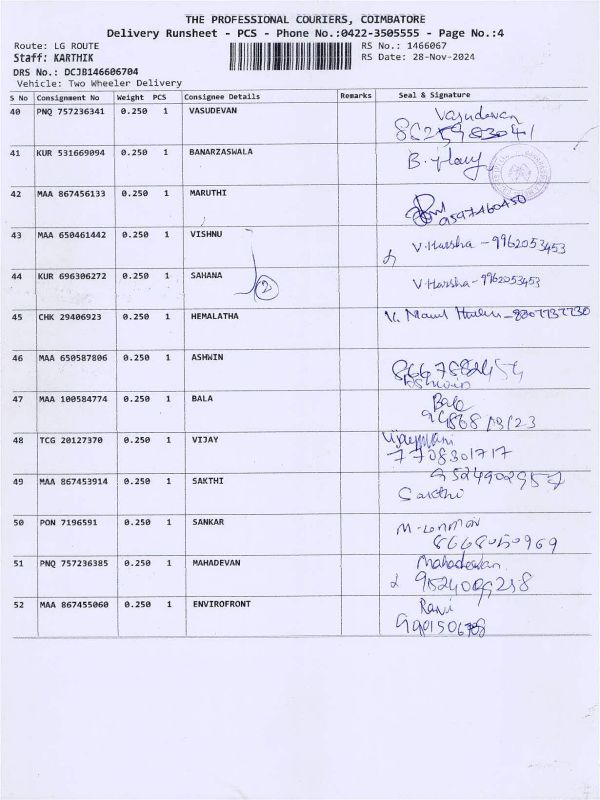 THE PROFESSIONAL COURIERS, COIMBATORE
Delivery Runsheet - PCS - Phone No.:0422-3505555 - Page No.:4
Route: LG ROUTE RS No.: 1466067
Staff: KARTHIK RS Date: 28-Nov-2024
DRS No.: DCJB146606704
Vehicle: Two Wheeler Delivery
S No Consignment No Weight PCS Consignee Details Remarks Seal & Signature
40 PNQ 757236341 0.250 1 VASUDEVAN Vasudevan
41 KUR 531669094 0.250 1 BANARZASWALA B.
42 MAA 867456133 0.250 1 MARUTHI 9597460450
43 MAA 650461442 0.250 1 VISHNU V.Harsha - 9962053453
44 KUR 696306272 0.250 1 SAHANA 2 V.Harsha - 9962053453
45 CHK 29406923 0.250 1 HEMALATHA
46 MAA 650587806 0.250 1 ASHWIN
Ashwin
47 MAA 100584774 0.250 1 BALA Bala
48 TCG 20127370 0.250 1 VIJAY
7708301717
49 MAA 867453914 0.250 1 SAKTHI 9524902957
Sakthi
50 PON 7196591 0.250 1 SANKAR
8668050969
51 PNQ 757236385 0.250 1 MAHADEVAN Mahadevan
52 MAA 867455060 0.250 1 ENVIROFRONT Ravi